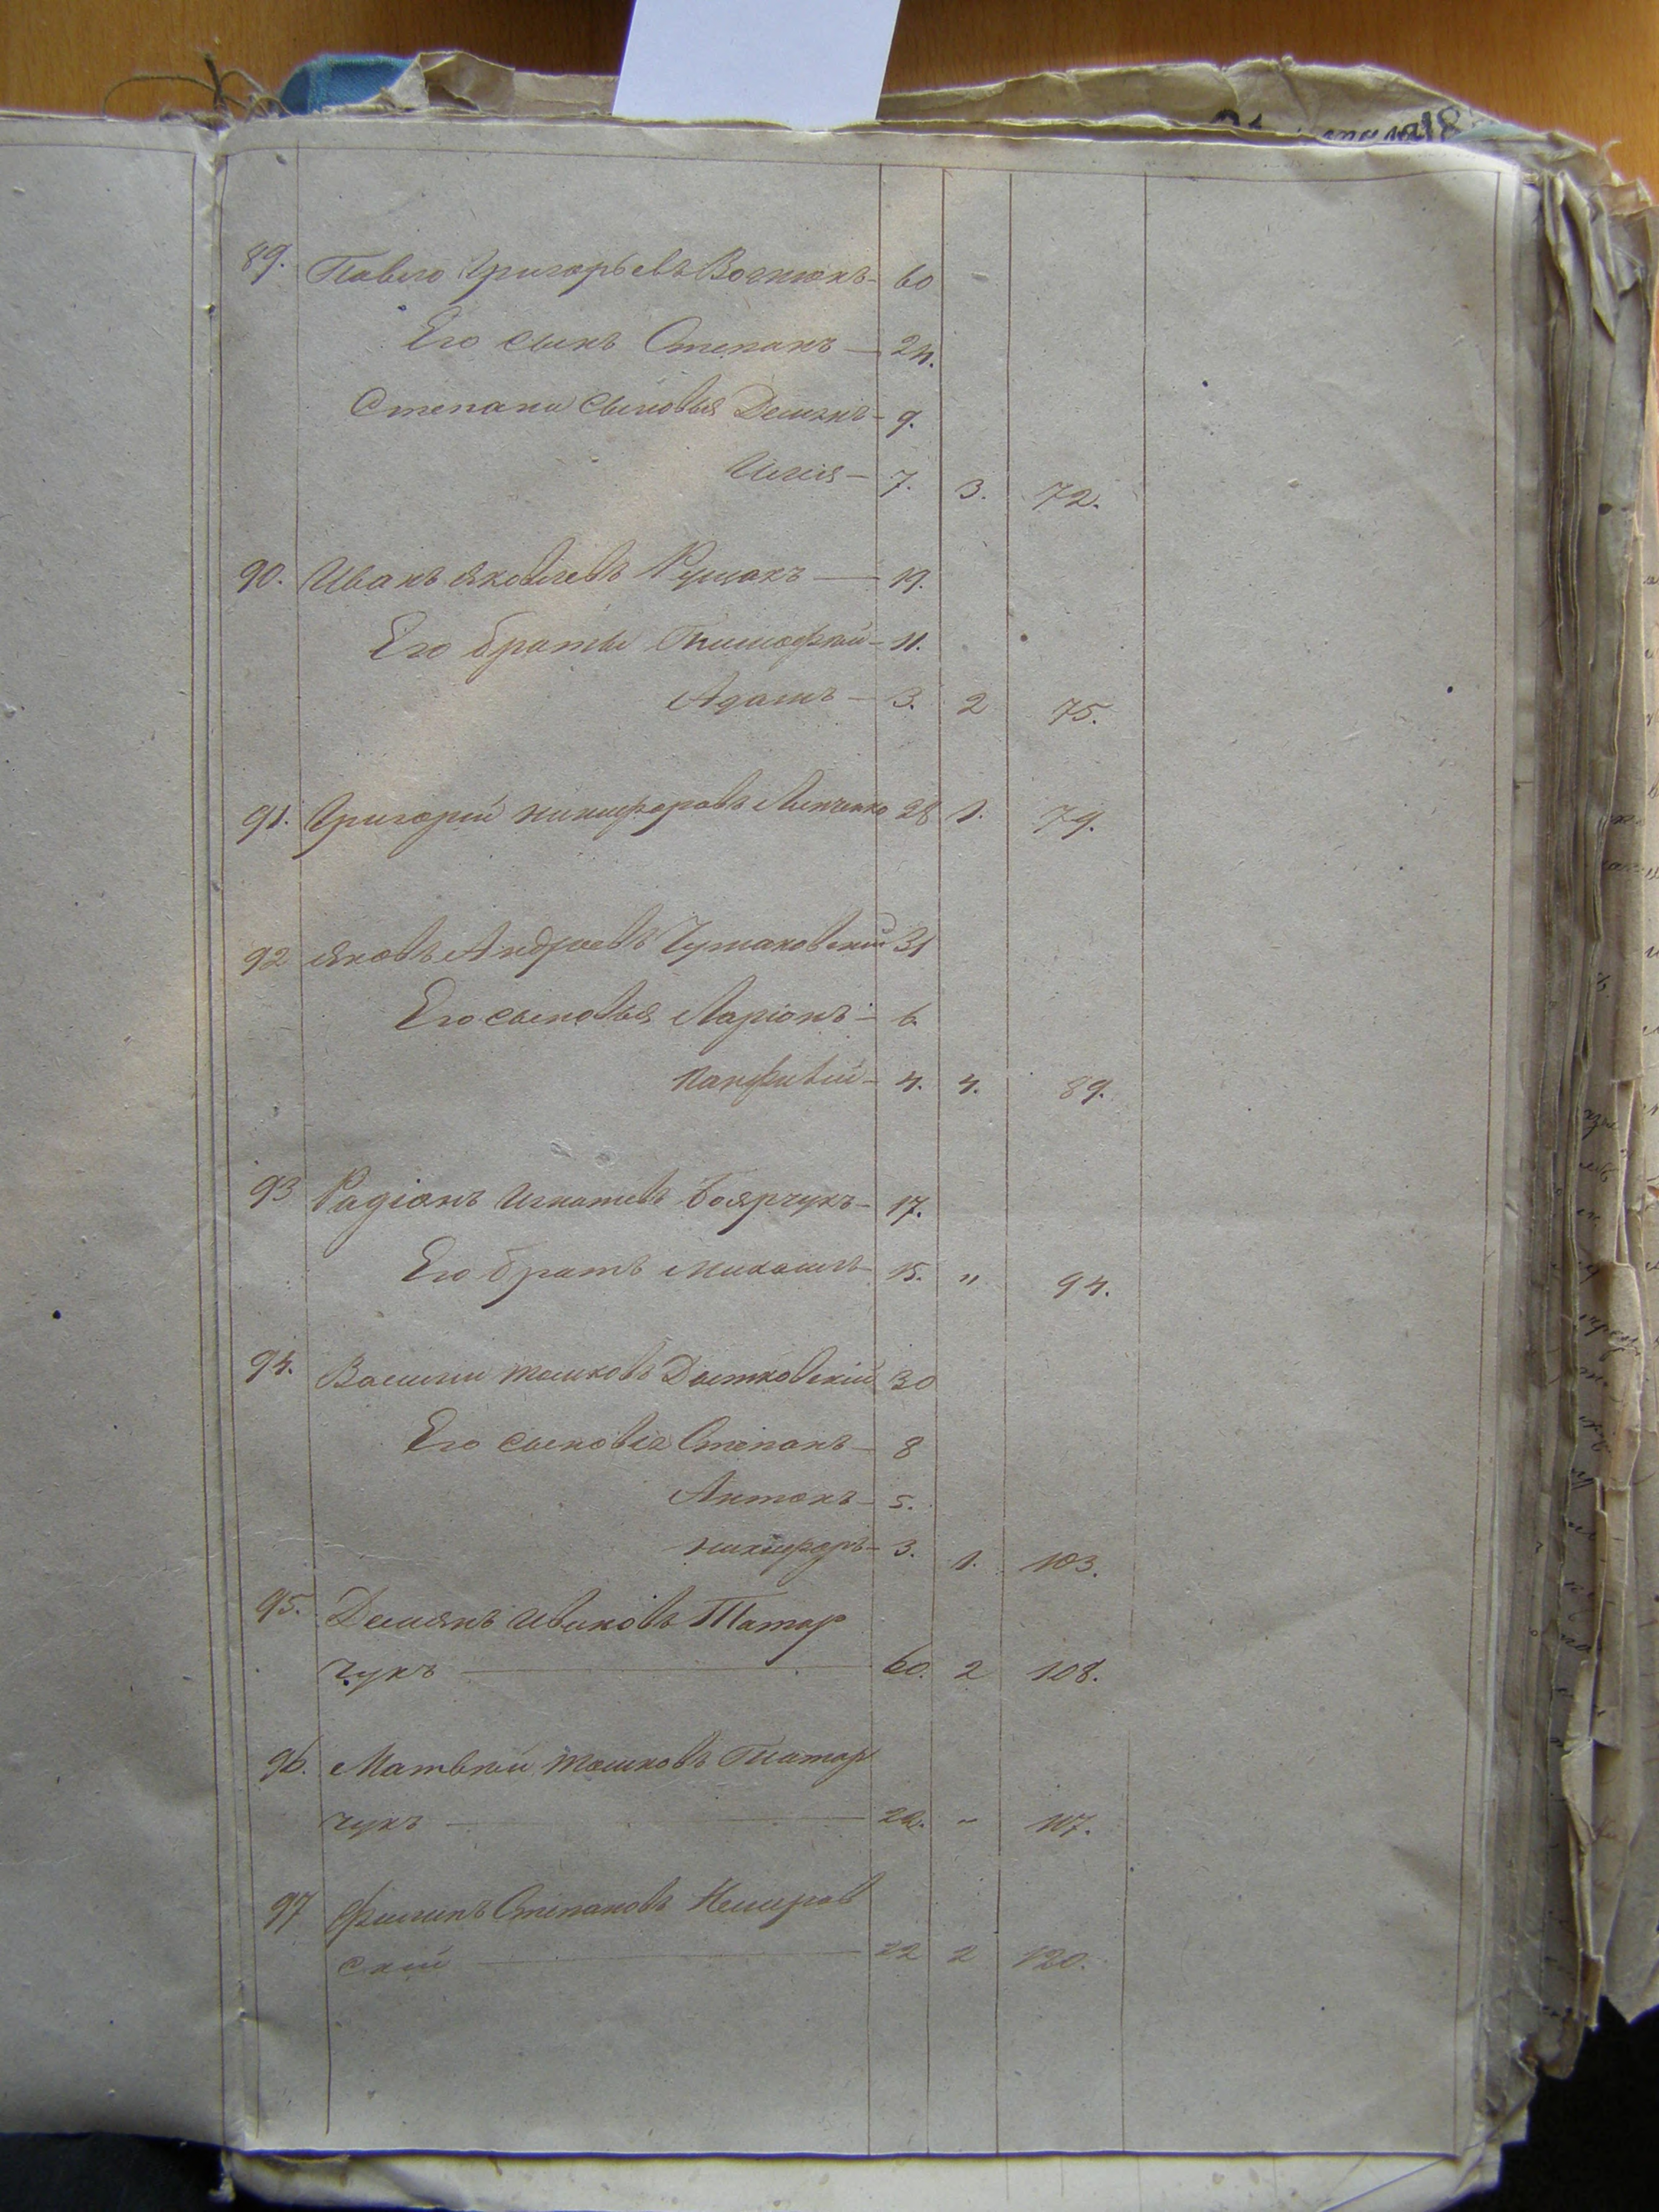 89. Павло Григорьевъ Вознюкъ - 60
Его сынъ Степанъ — 24.
Степана сыновья Демянъ - 9.
Илия - 7. 3. 72.
90. Иванъ яковлевъ — 19.
Его братья Тимофѣй - 11.
Адамъ - 3. 2 75.
91. Григорій никифоровъ 28 1. 79.
92 яковъ Андреевъ Чумаковский 31
Его сыновья Ларіонъ - 6.
4. 4. 89.
93 Радіонъ Игнатевъ боярчукъ - 17.
Его братъ михаилъ - 15. " 94.
94. Василий Дытковский 30
Его сыновья Степанъ - 8
Антонъ - 5.
никифоръ - 3. 1. 103.
95. Демянъ Ивановъ Татар
чукъ — 60. 2 108.
96. Матвѣй Татар
чукъ — 22. " 117.
97 Филипъ Степановъ Немиров
ский — 22 2 120.